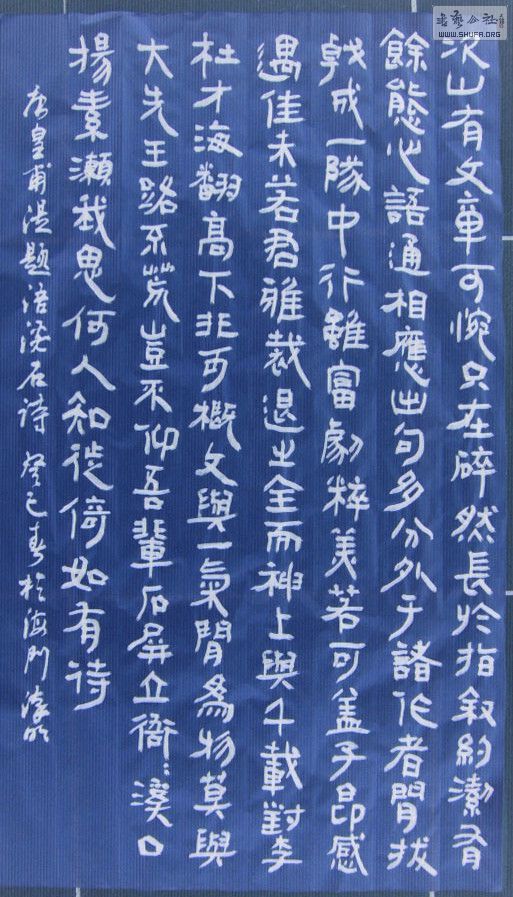 書藝公社
WWW.SHUFA.ORG
次山有文章可惋只在碎然長於指叙約潔有
餘態心語通相應出句多分外于諸作者間拔
戟成一隊中行雖富劇粹美若可盖子昂感
遇佳未若君雅裁退之全而神上與千載對李
杜才海翻高下非可概文與一氣間為物莫與
大先王路不荒豈不仰吾輩石屏立衙〻溪口
揚素瀨我思何人知徙倚如有待
唐皇甫湜題浯溪石詩 癸巳春於海門